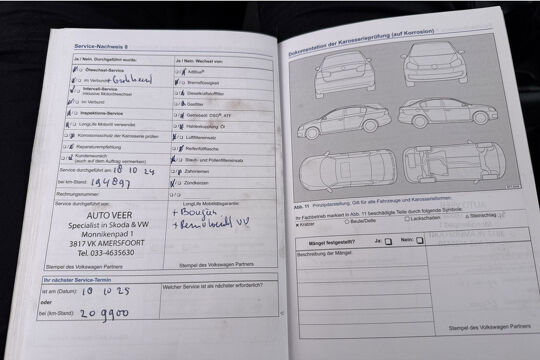 Service-Nachweis 8
Ja / Nein. Durchgeführt wurde:
Ölwechsel-Service
im Verbund
Intervall-Service
inklusive Motorölwechsel
im Verbund
Inspektions-Service
LongLife Motoröl verwendet
Korrosionsschutz der Karosserie prüfen
Reparaturempfehlung
Kundenwunsch
(auch auf dem Auftrag vermerken)
Service durchgeführt am: 18 10 24
bei km-Stand: 194897
Rechnungsnummer:
Service durchgeführt von:
AUTO VEER
Specialist in Skoda & VW
Monnikenpad 1
3817 VK AMERSFOORT
Tel. 033-4635630
Stempel des Volkswagen Partners
Ja / Nein. Wechsel von:
AdBlue®
Bremsflüssigkeit
Dieselkraftstofffilter
Gasfilter
Getriebeöl: DSG®, ATF
Haldexkupplung: Öl
Luftfiltereinsatz
Reifenfüllflasche
Staub- und Pollenfiltereinsatz
Zahnriemen
Zündkerzen
LongLife Mobilitätsgarantie:
+ Bougies
+ Remvloeistof VV
Stempel des Volkswagen Partners
Ihr nächster Service-Termin
ist am (Datum): 18 10 25
oder
bei (km-Stand): 209900
Welcher Service ist als nächster erforderlich?
Dokumentation der Karosserieprüfung (auf Korrosion)
Abb. 11 Prinzipdarstellung: Gilt für alle Fahrzeuge und Karosserieformen.
Ihr Fachbetrieb markiert in Abb. 11 beschädigte Teile durch folgende Symbole:
× Kratzer ○ Beule/Delle □ Lackschaden △ Steinschlag
Mängel festgestellt? Ja: Nein:
Beschreibung der Mängel:
Stempel des Volkswagen Partners